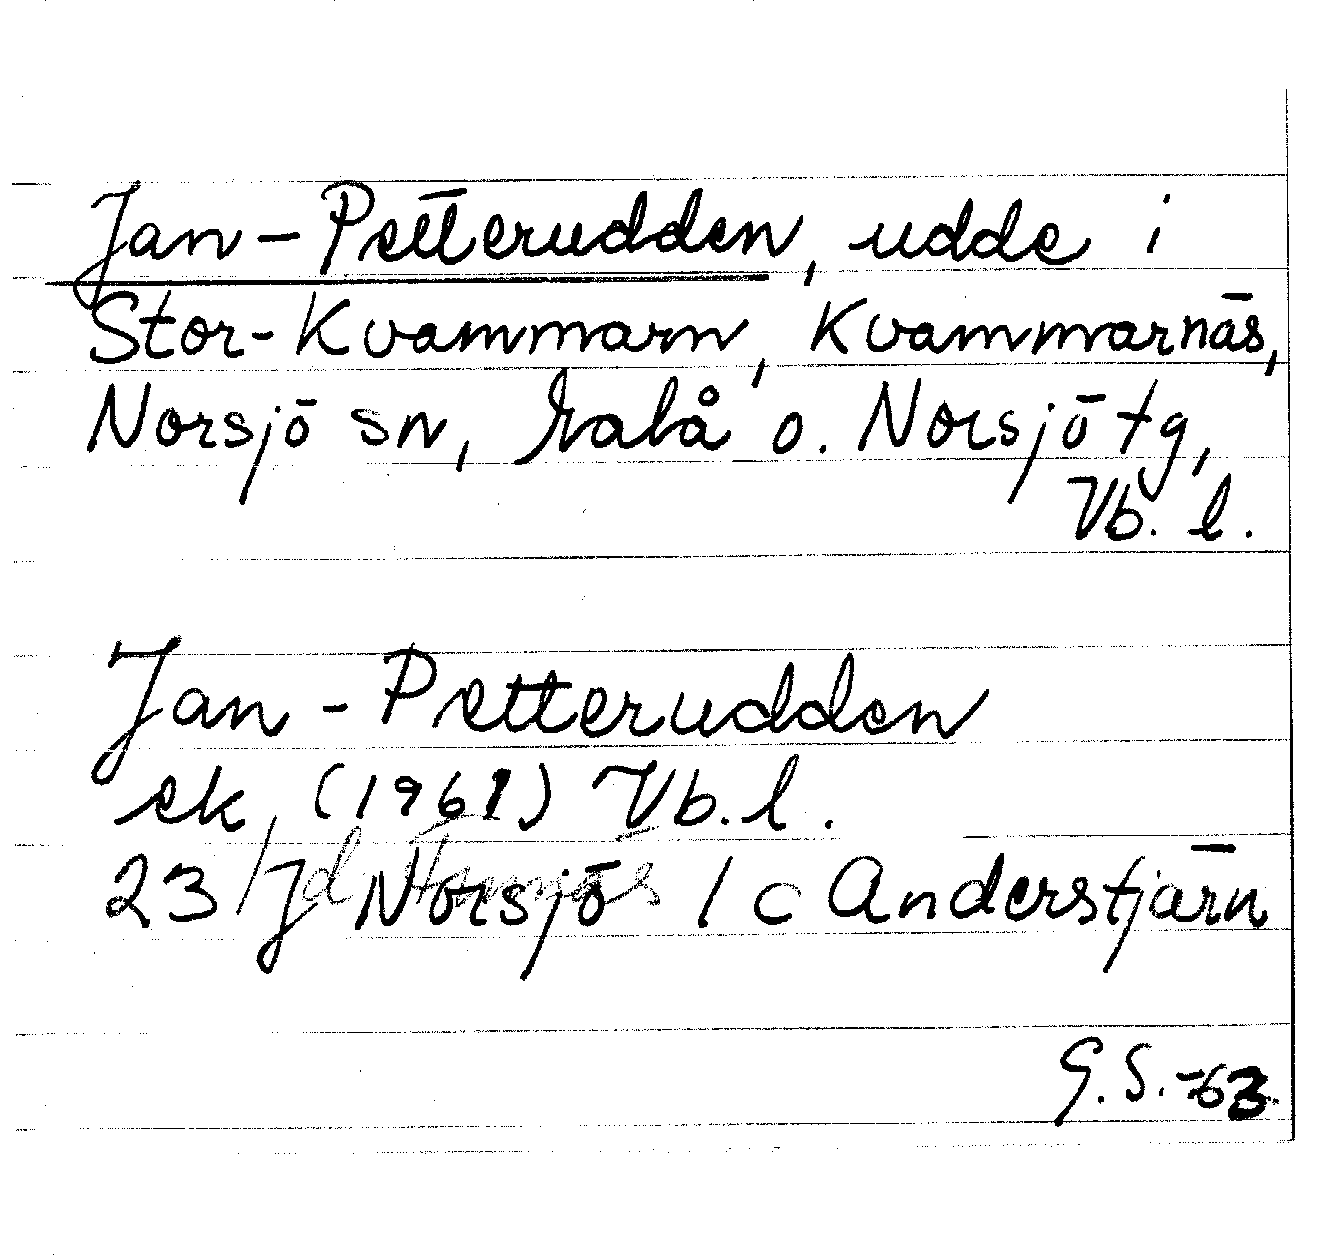 Jan-Petterudden, udde i
Stor-Kvammarn, Kvammarnäs,
Norsjö sn, Malå o. Norsjö tg,
Vb. l.
Jan-Petterudden
ek, (1961) Vb. l.
23 Jd Norsjö 1 c Anderstjärn
G.S.-63